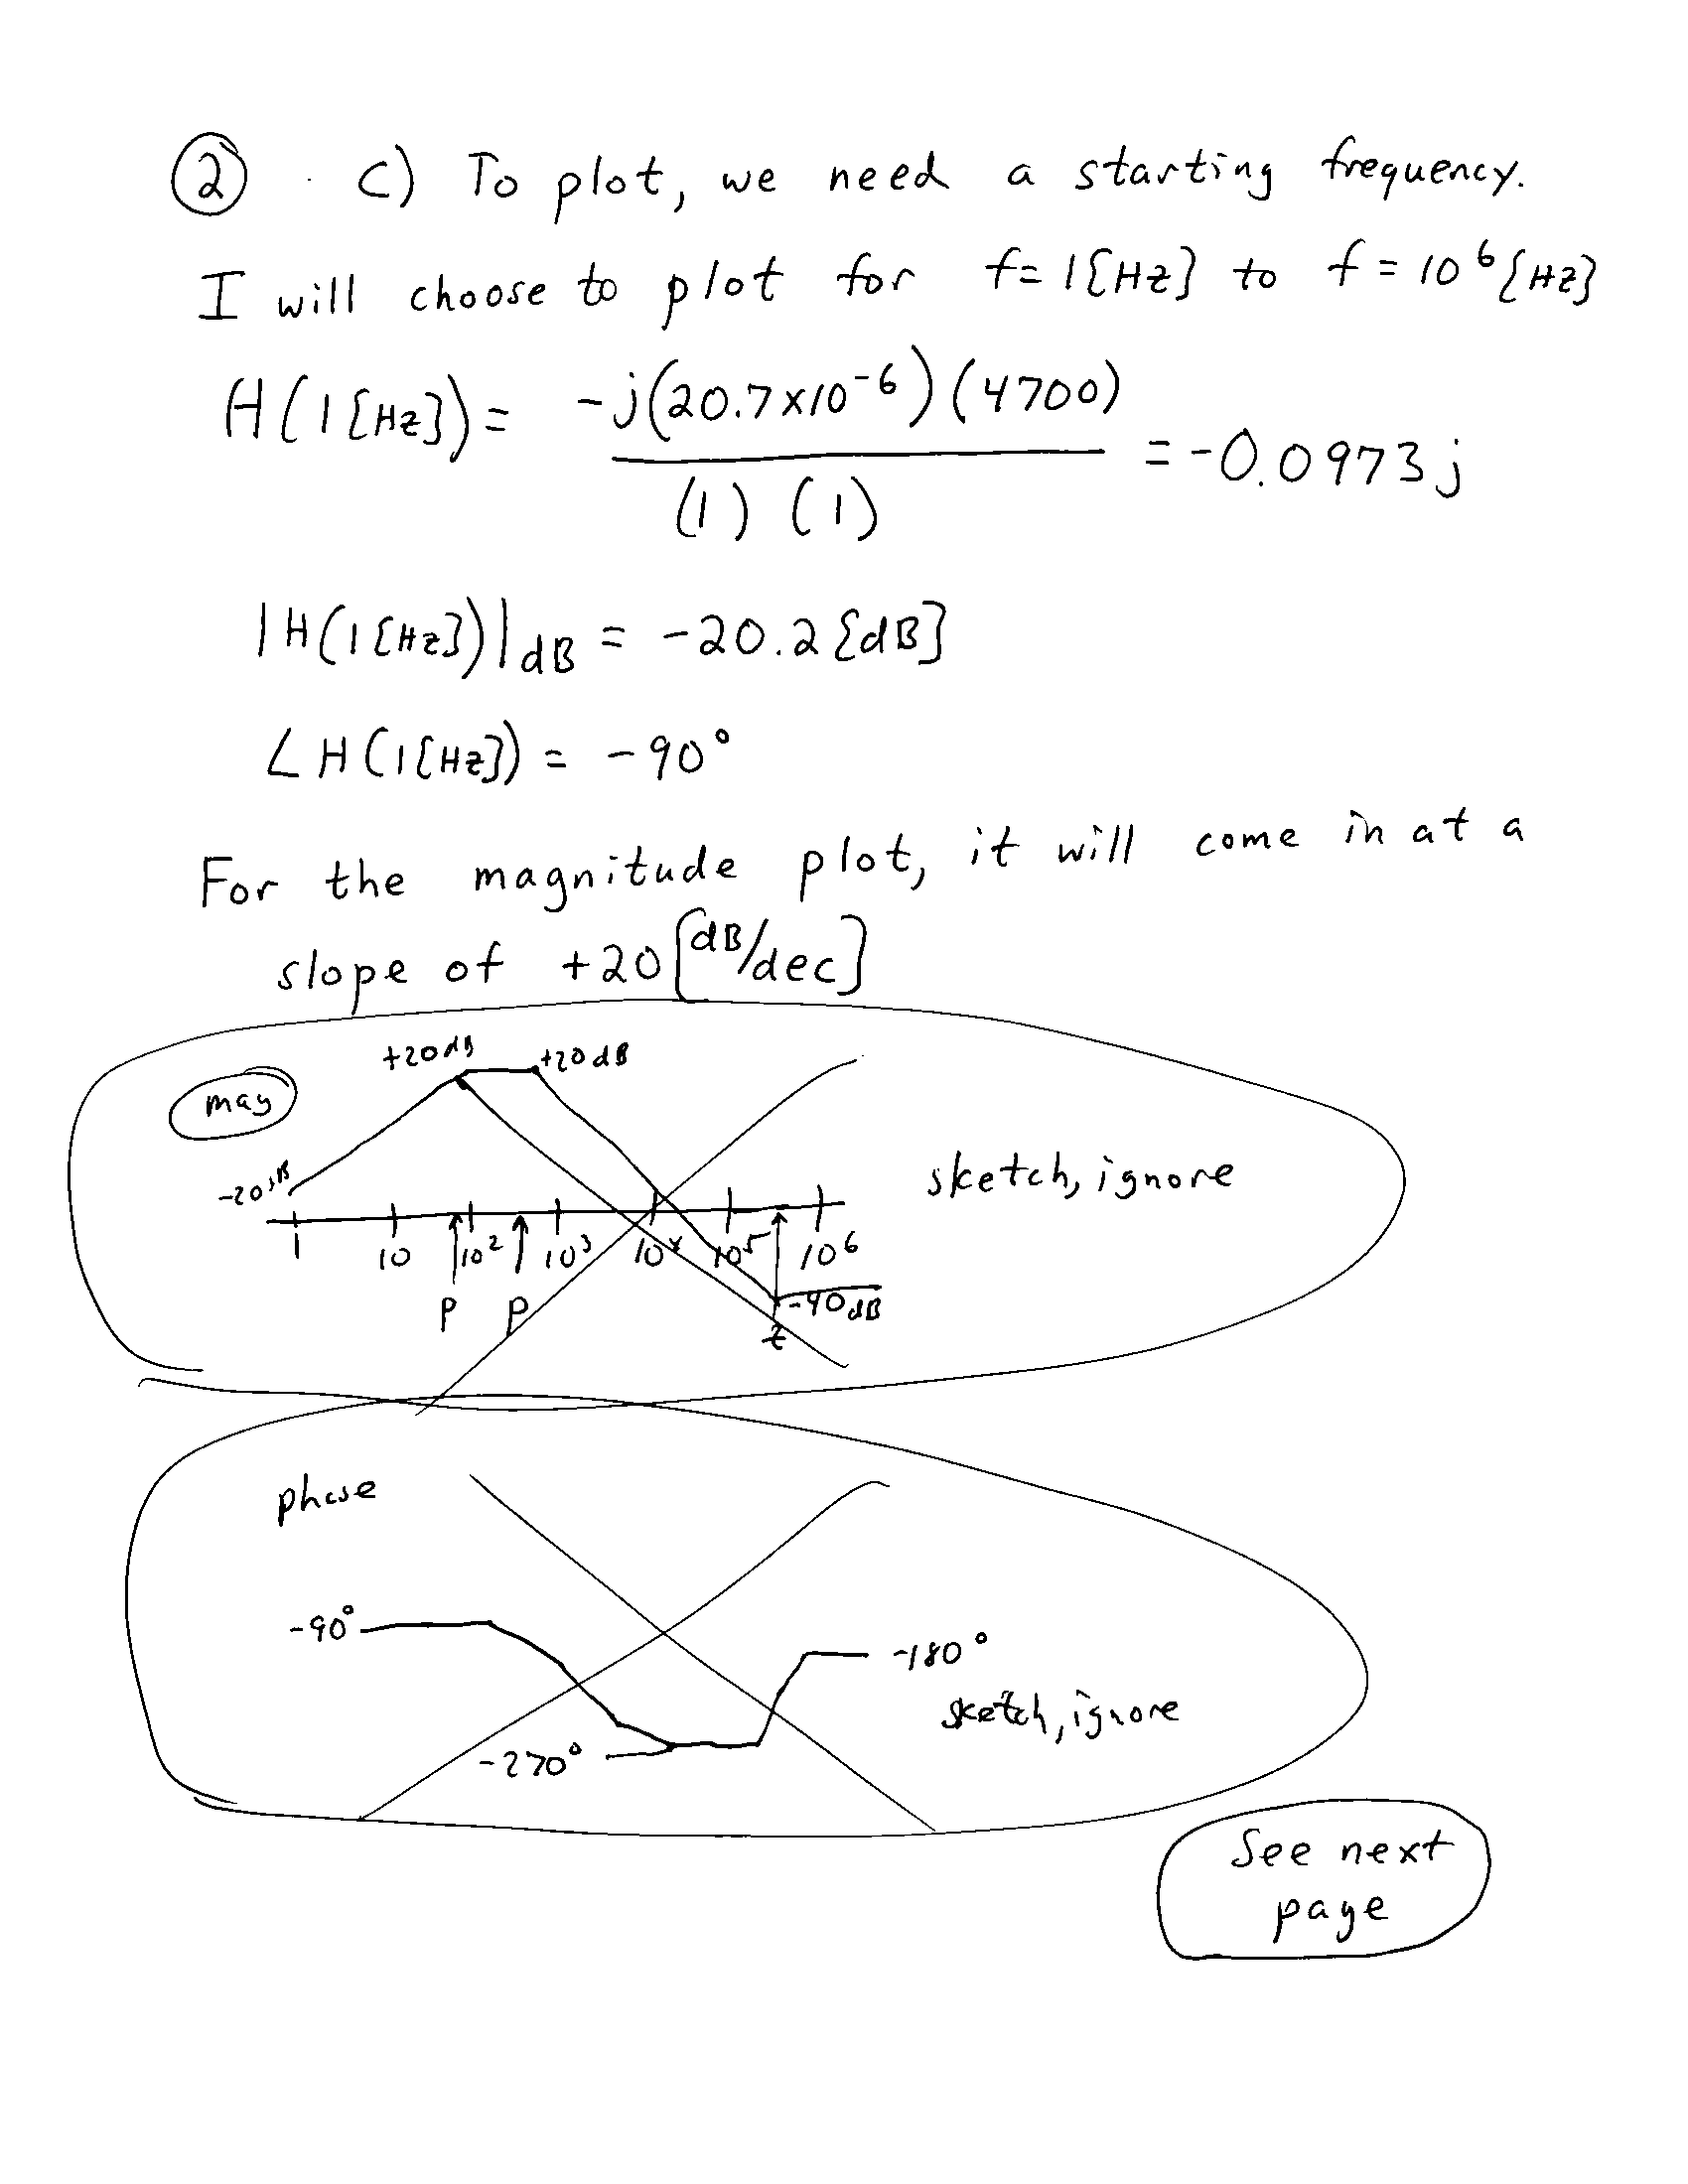 ② c) To plot, we need a starting frequency.
I will choose to plot for f=1[Hz] to f=10⁶[Hz]
H(1[Hz])= -j(20.7x10⁻⁶)(4700) / (1)(1) = -0.0973j
|H(1[Hz])|dB = -20.2[dB]
∠H(1[Hz]) = -90°
For the magnitude plot, it will come in at a
slope of +20[dB/dec]
+20dB +20dB
mag
-20dB
sketch, ignore
1 10 10² 10³ 10⁴ 10⁵ 10⁶
p p z -40dB
phase
-90°
-180°
sketch, ignore
-270°
See next
page